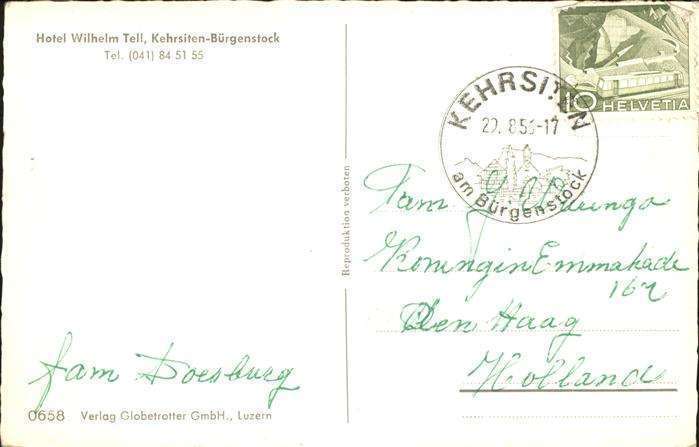 Hotel Wilhelm Tell, Kehrsiten-Bürgenstock
Tel. (041) 84 51 55
10 HELVETIA
KEHRSITEN
8.5
-17
am Bürgenstock
Reproduktion verboten
Fam
Koningin Emmakade
167
Den Haag
Holland
fam Doesburg
0658 Verlag Globetrotter GmbH., Luzern